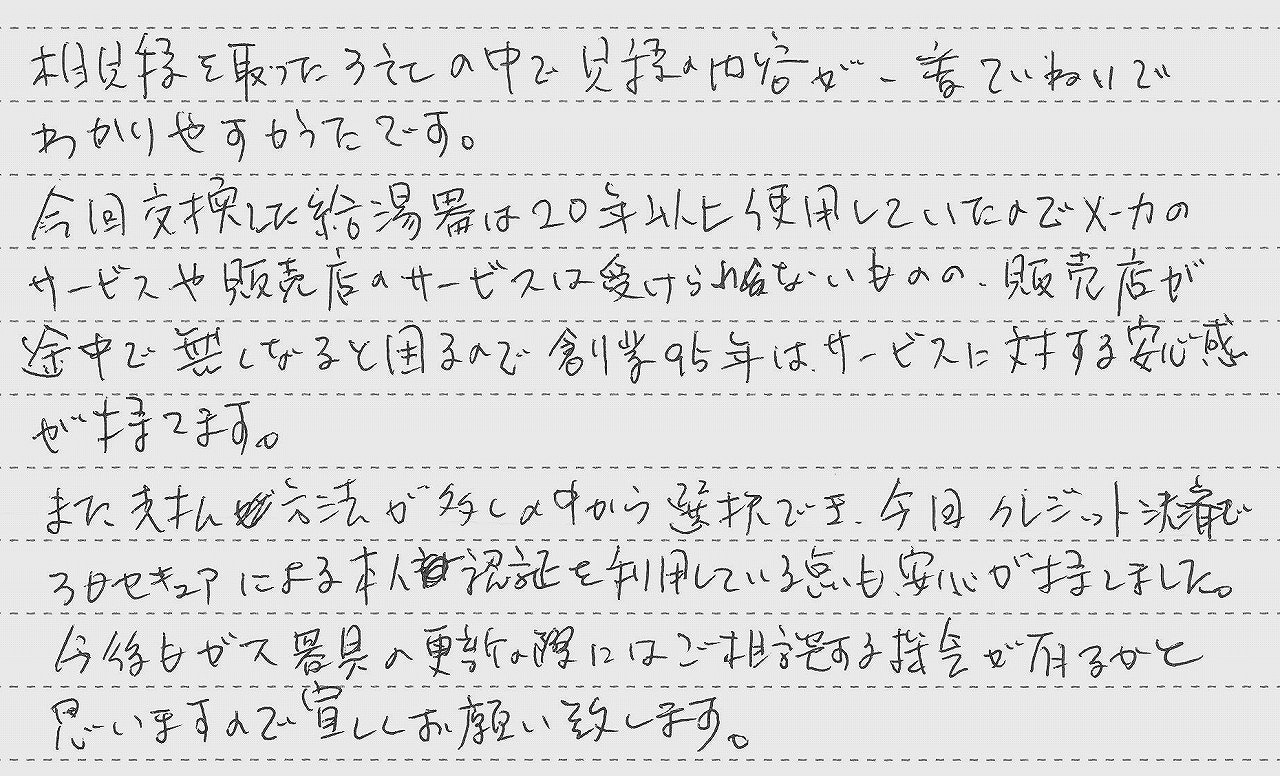 相見様を取った3社の中で見積の内容が一番ていねいで
わかりやすかったです。
今回交換した給湯器は20年以上使用していたのでメーカの
サービスや販売店のサービスは受けられないものの、販売店が
途中で無くなると困るので創業95年はサービスに対する安心感
が持てます。
また支払方法が多くの中から選択でき、今回クレジット決済で
3Dセキュアによる本人認証を利用している点も安心が持てました。
今後もガス器具の更新の際にはご相談する機会が有るかと
思いますので宜しくお願い致します。